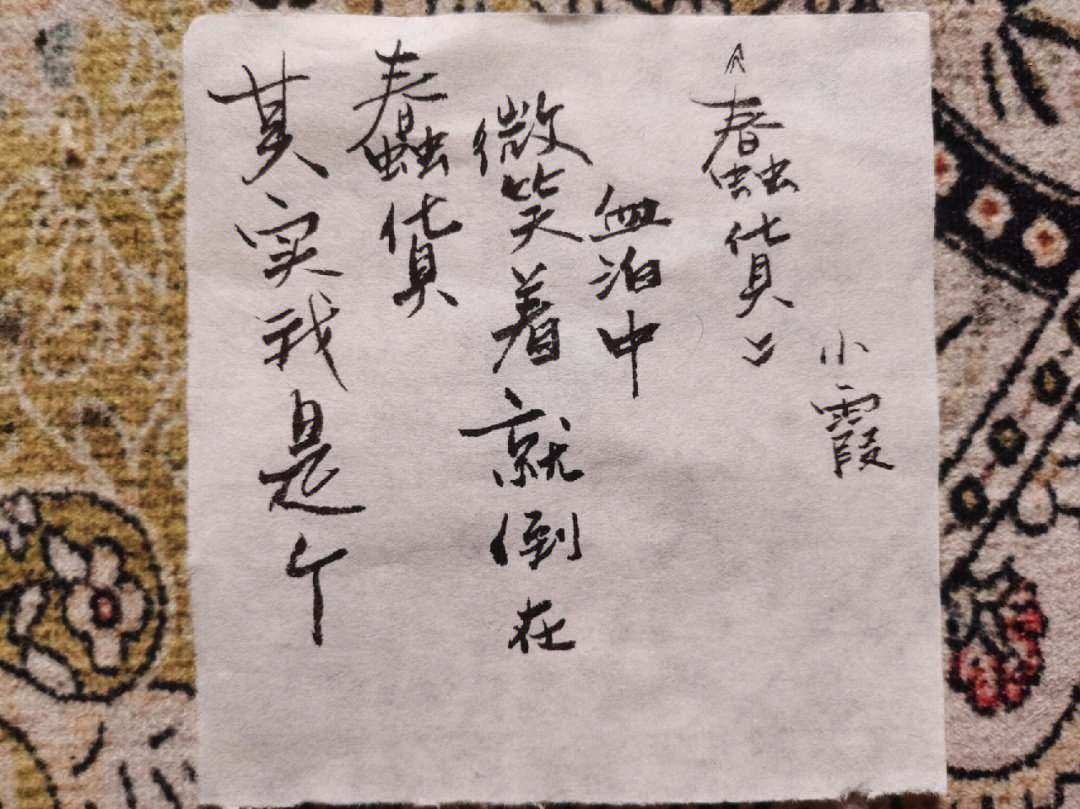 其实我是个
蠢貨
微笑着就倒在
血泊中
《蠢貨》
小霞